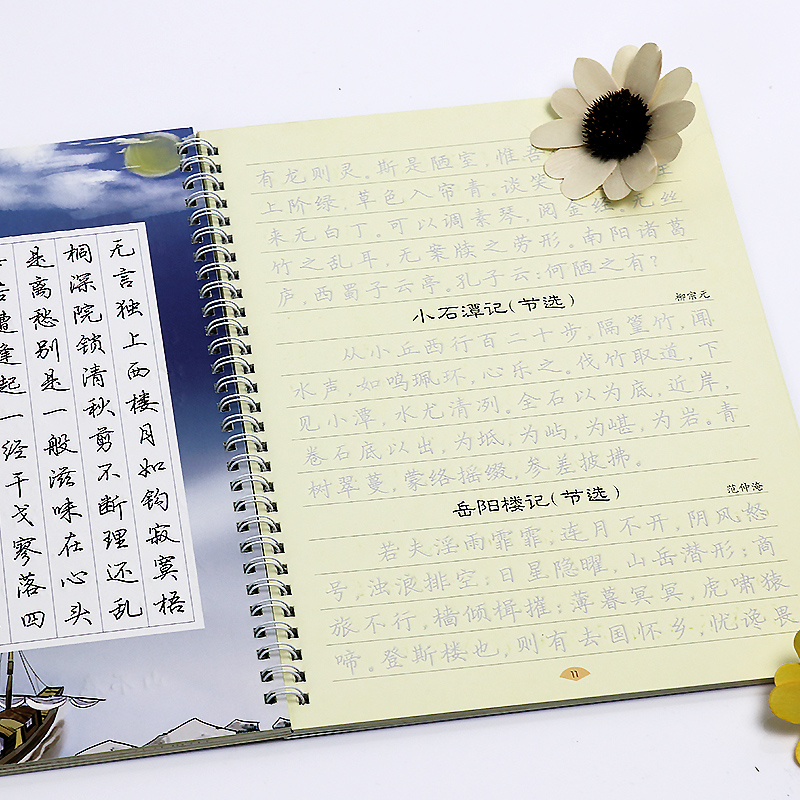 无言独上西楼月如钩寂寞梧
桐深院锁清秋剪不断理还乱
是离愁别是一般滋味在心头
苦遭逢起一经干戈寥落四
有龙则灵。斯是陋室,惟吾
上阶绿,草色入帘青。谈笑
来无白丁。可以调素琴,阅金经。无丝
竹之乱耳,无案牍之劳形。南阳诸葛
庐,西蜀子云亭。孔子云:何陋之有?
小石潭记(节选)
柳宗元
从小丘西行百二十步,隔篁竹,闻
水声,如鸣珮环,心乐之。伐竹取道,下
见小潭,水尤清冽。全石以为底,近岸,
卷石底以出,为坻,为屿,为嵁,为岩。青
树翠蔓,蒙络摇缀,参差披拂。
岳阳楼记(节选)
范仲淹
若夫淫雨霏霏,连月不开,阴风怒
号,浊浪排空;日星隐曜,山岳潜形;商
旅不行,樯倾楫摧;薄暮冥冥,虎啸猿
啼。登斯楼也,则有去国怀乡,忧谗畏
11